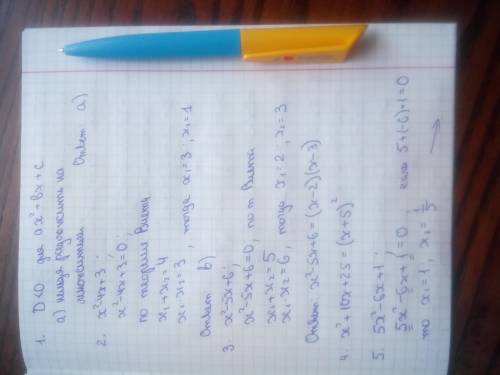 1. D<0 для ax²+bx+c
а) нельзя разложить на
множители Ответ а)
2. x²-4x+3;
x²-4x+3=0;
по теореме Виета
x₁+x₂=4
x₁·x₂=3, тогда x₁=3; x₂=1
Ответ б)
3 x²-5x+6;
x²-5x+6=0, по т Виета
x₁+x₂=5
x₁·x₂=6, тогда x₁=2; x₂=3
Ответ x²-5x+6=(x-2)(x-3)
4. x²+10x+25=(x+5)²
5. 5x²-6x+1;
5x²-6x+1=0, если 5+(-6)+1=0
то x₁=1, x₂=1/5 →